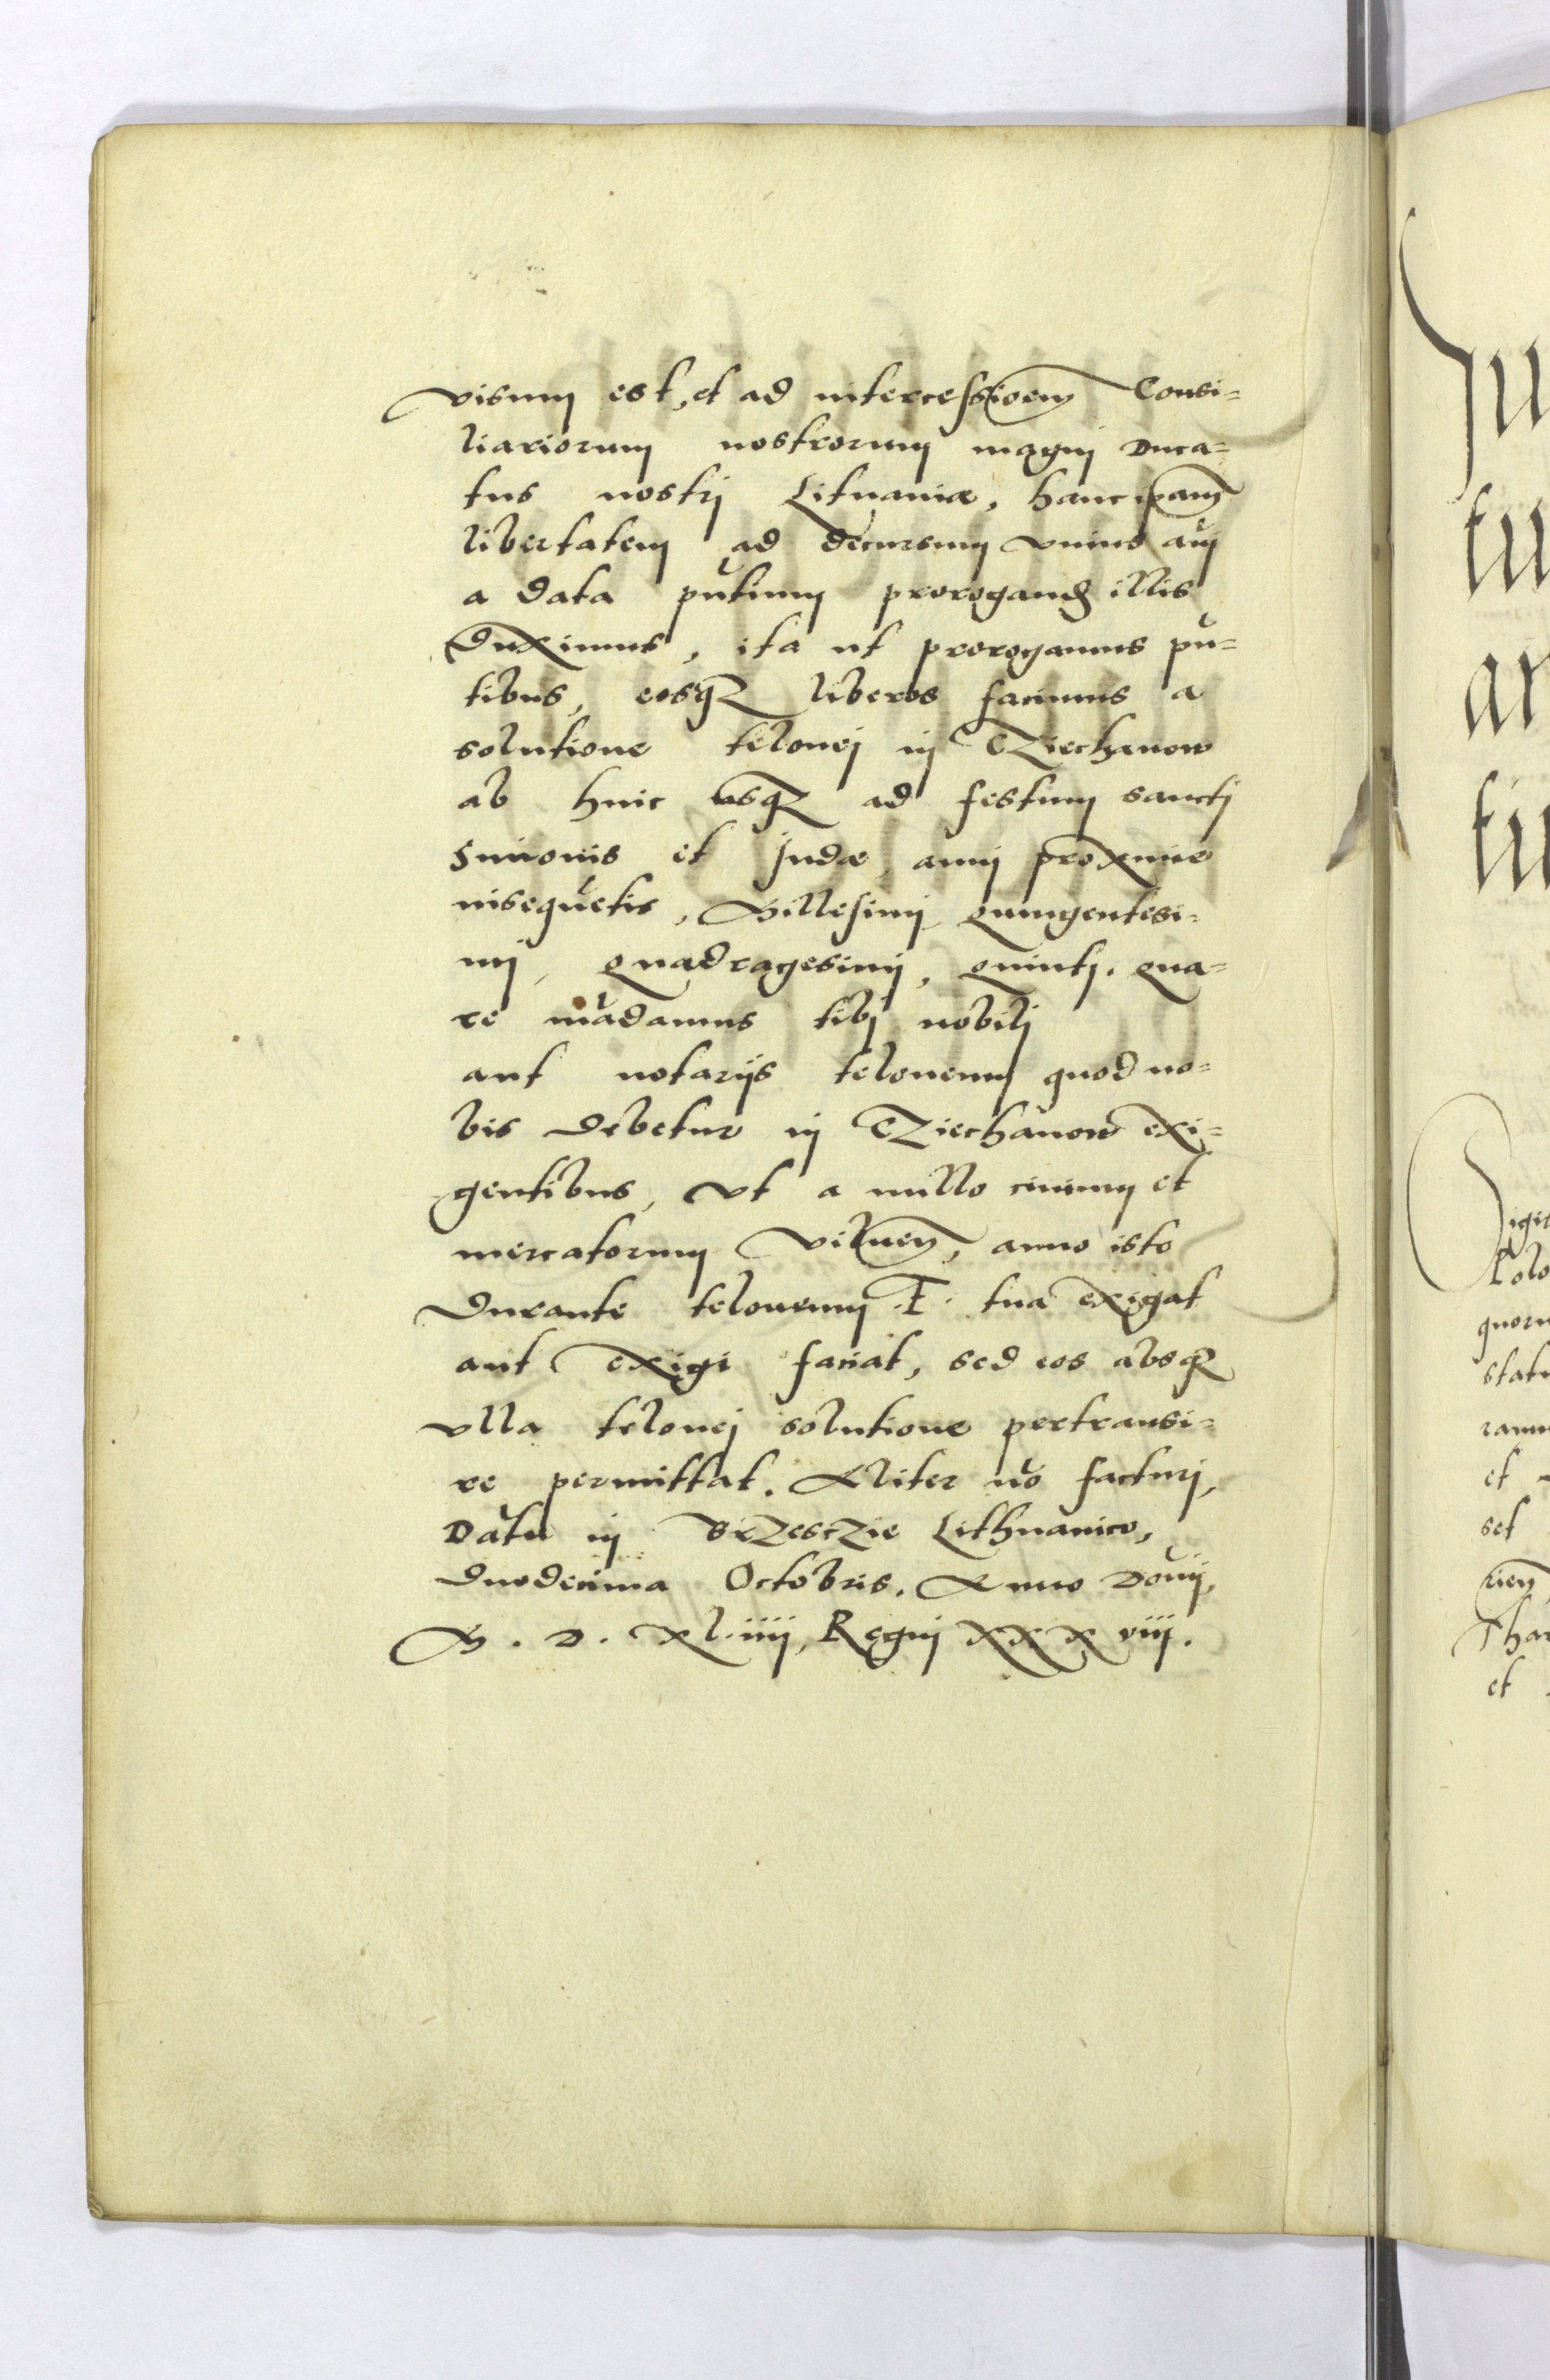 visum est, et ad intercessioem Consi=
liariorum nostrorum magni Duca=
tus nostri Lituaniæ, hanc ipam
libertatem ad decursum unius ani
a data pn̄tium prorogand illis
duximus, ita ut prorogamus pn̄=
tibus, eosq₃ liberos facimus a
solutione telonei in CZiechanow
ab hinc usq₃ ad festum sancti
Simonis et Judæ, anni proxime
insequētis, Millesimi quingentesi=
mi, quadragesimi, quinti. Qua=
re mādamus tibi nobili
aut notarijs teloneum quod no=
bis debetur in CZiechanow exi=
gentibus, Vt a nullo civium et
mercatorum Vilnen, anno isto
durante teloneum .F. tua exigat
aut exigi faciat, sed eos absq₃
ulla telonei solutione pertransi=
re permittat. Aliter nō facturi,
Datū in BrZescZie Lithuanico,
duodecima Octobris. Anno Doni,
M. D. xl.iiij, Regni xxxviij.
tu
ar
Polo
quoru
statu
et
set
et